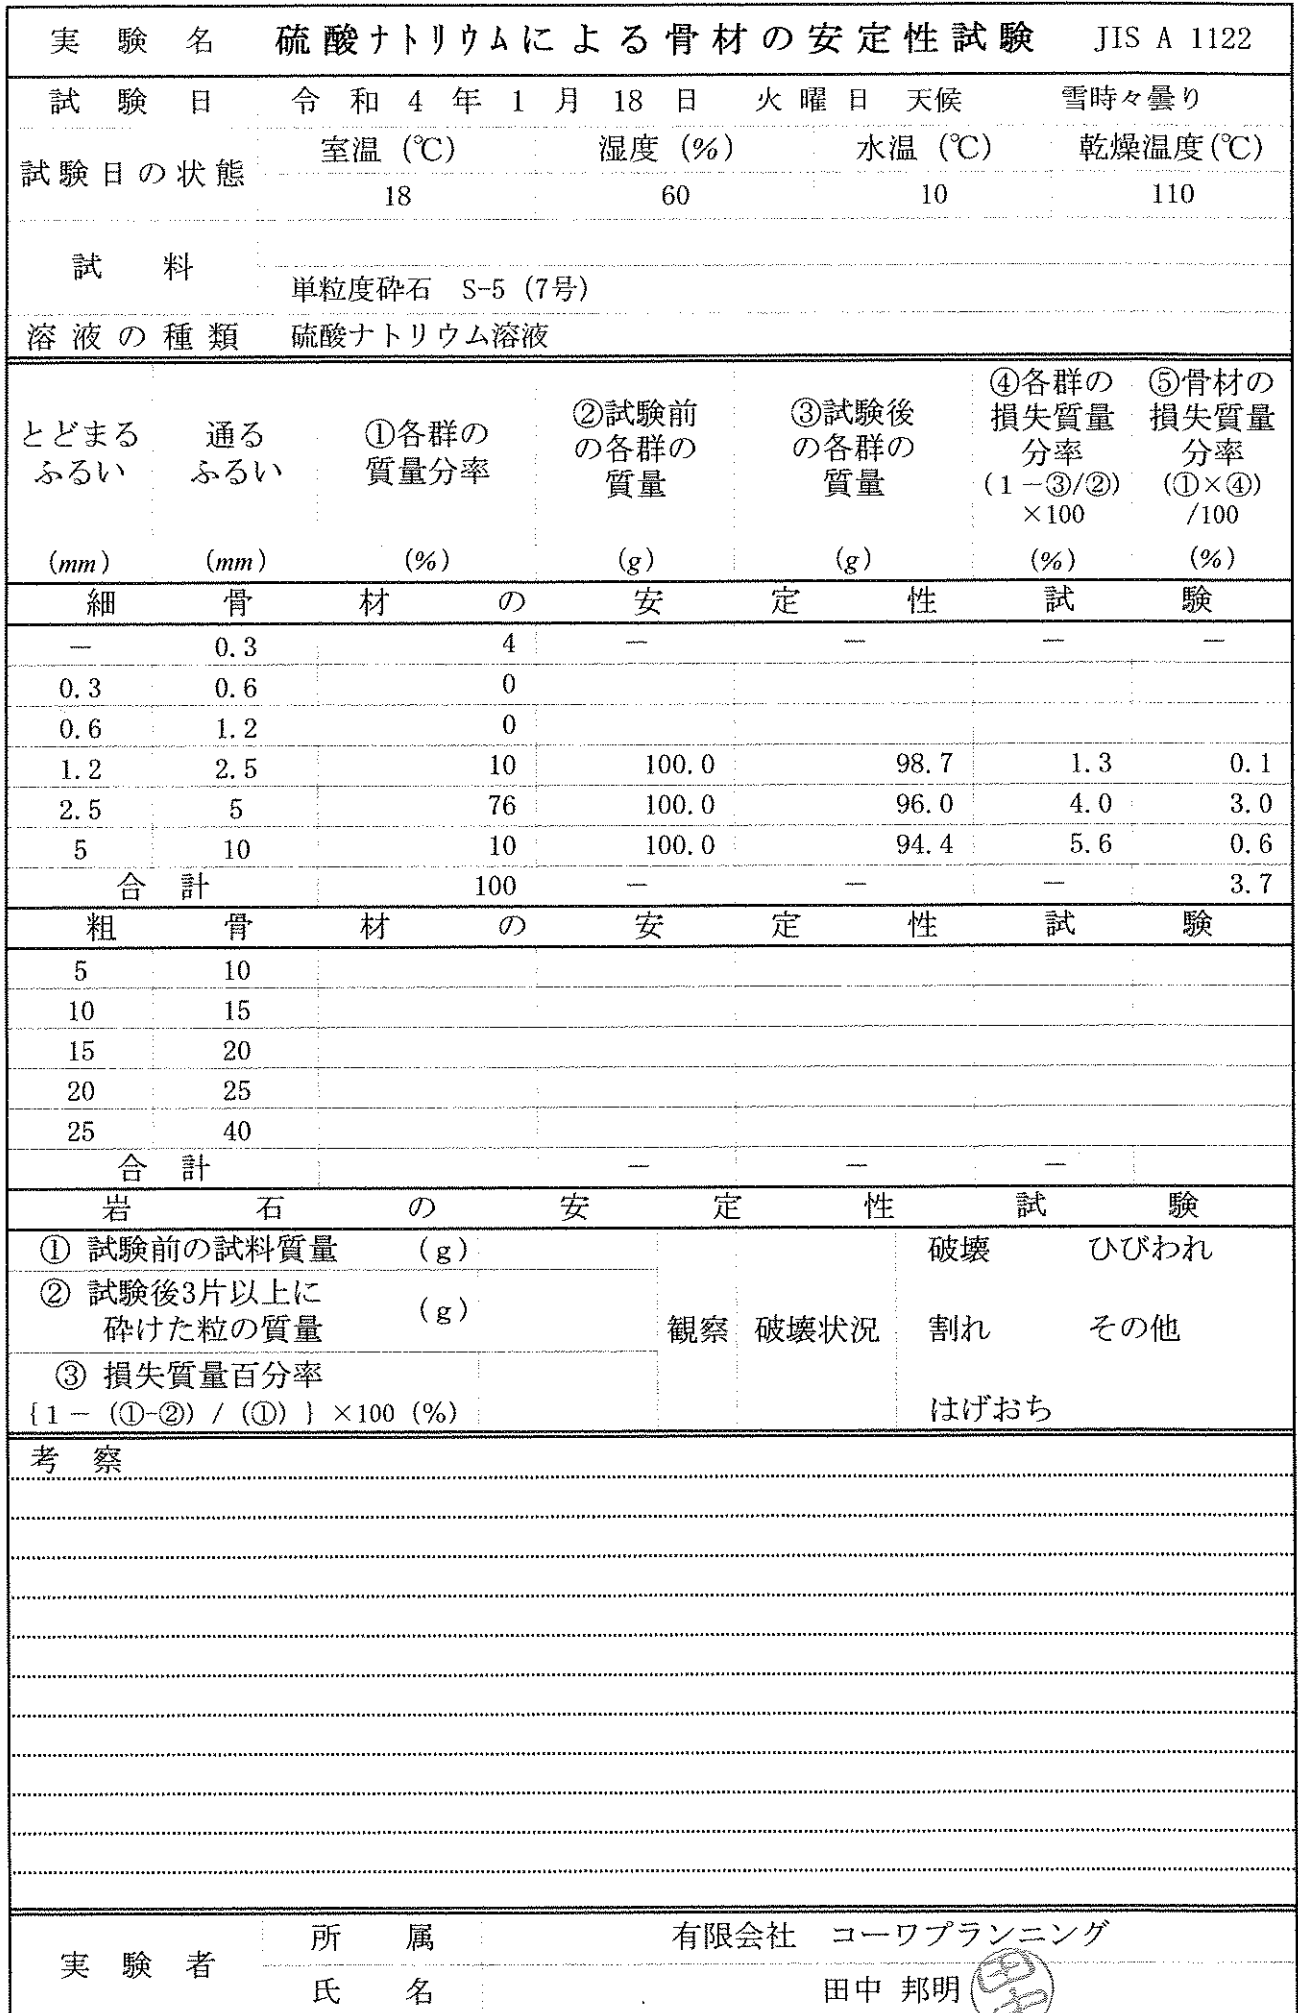 実験名 硫酸ナトリウムによる骨材の安定性試験 JIS A 1122
試験日 令和4年1月18日 火曜日 天候 雪時々曇り
試験日の状態 室温(℃) 湿度(%) 水温(℃) 乾燥温度(℃)
18 60 10 110
試料
単粒度砕石 S-5(7号)
溶液の種類 硫酸ナトリウム溶液
とどまるふるい (mm)
通るふるい (mm)
①各群の質量分率 (%)
②試験前の各群の質量 (g)
③試験後の各群の質量 (g)
④各群の損失質量分率 (1-③/②)×100 (%)
⑤骨材の損失質量分率 (①×④)/100 (%)
細骨材の安定性試験
— 0.3 4 — — — —
0.3 0.6 0
0.6 1.2 0
1.2 2.5 10 100.0 98.7 1.3 0.1
2.5 5 76 100.0 96.0 4.0 3.0
5 10 10 100.0 94.4 5.6 0.6
合計 100 — — — 3.7
粗骨材の安定性試験
5 10
10 15
15 20
20 25
25 40
合計 — — —
岩石の安定性試験
① 試験前の試料質量 (g)
② 試験後3片以上に
砕けた粒の質量 (g)
③ 損失質量百分率
{1-(①-②)/(①)}×100(%)
観察 破壊状況
破壊 ひびわれ
割れ その他
はげおち
考察
実験者 所属 有限会社 コーワプランニング
氏名 田中 邦明